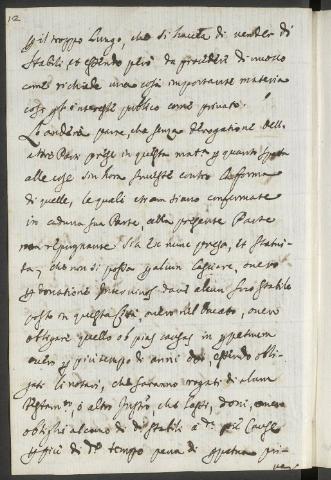 12
il troppo lungo, che si haveva di vender di
stabili et essendo però da proceder di nuovo
come richiede una cosi importante materia
cosi per interesse publico come privato.
L'anderà parte che senza derogatione dell'
altre Parti prese in questa mat.ia per quanto spetta
alle cose sin hora seguite contro la forma
di quelle, le quali etiam siano confirmate
in cadauna sua Parte, alla presente Parte
non repugnante. Sia ex nunc presa, et statui-
ta, che non si possa per alcun lassare, overo
per donatione inter vivos dare alcun suo stabile
posto in questa Città overo nel Ducato, overo
obligare quello ob pias causas in perpetuum
over per più tempo di anni doi, essendo obli-
gati li notari, che saranno rogati di alcun
Testam.to ò altro Instr.o, che lassi, doni, overo
oblighi alcuno di d.i stabili à d.e pie Cause
per più di d.o tempo pena di perpetua pri-